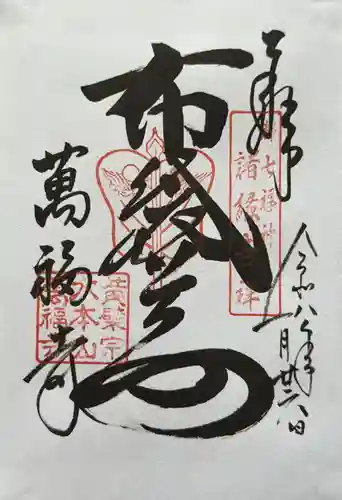 奉拝
令和八年一月廿六日
七福神
諸縁吉祥
布袋尊
萬福寺
黄檗宗
大本山
萬福寺